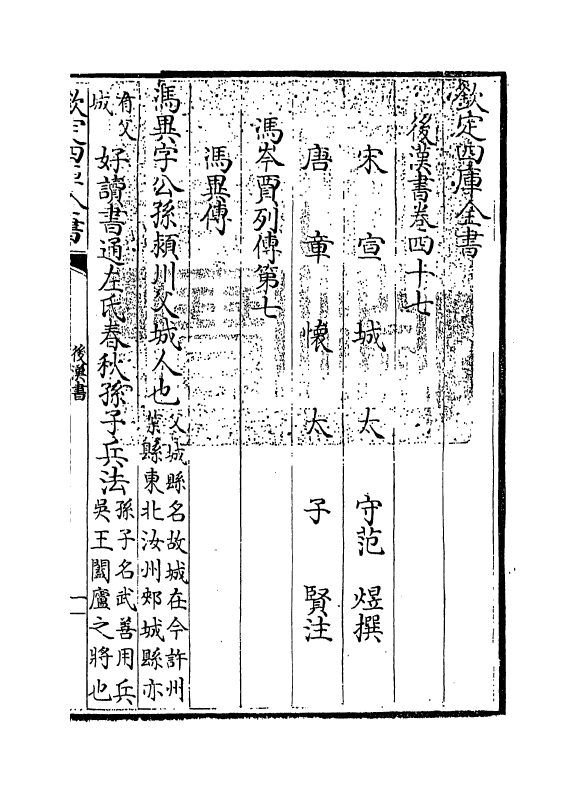 欽定四庫全書
後漢書卷四十七
宋宣城太守范煜撰
唐章懷太子賢注
馮岑賈列傳第七
馮異傳
馮異字公孫潁川父城人也父城縣名故城在今許州
葉縣東北汝州郟城縣亦
有父
城
好讀書通左氏春秋孫子兵法孫子名武善用兵
吳王闔廬之將也
欽定四庫全書
後漢書
一